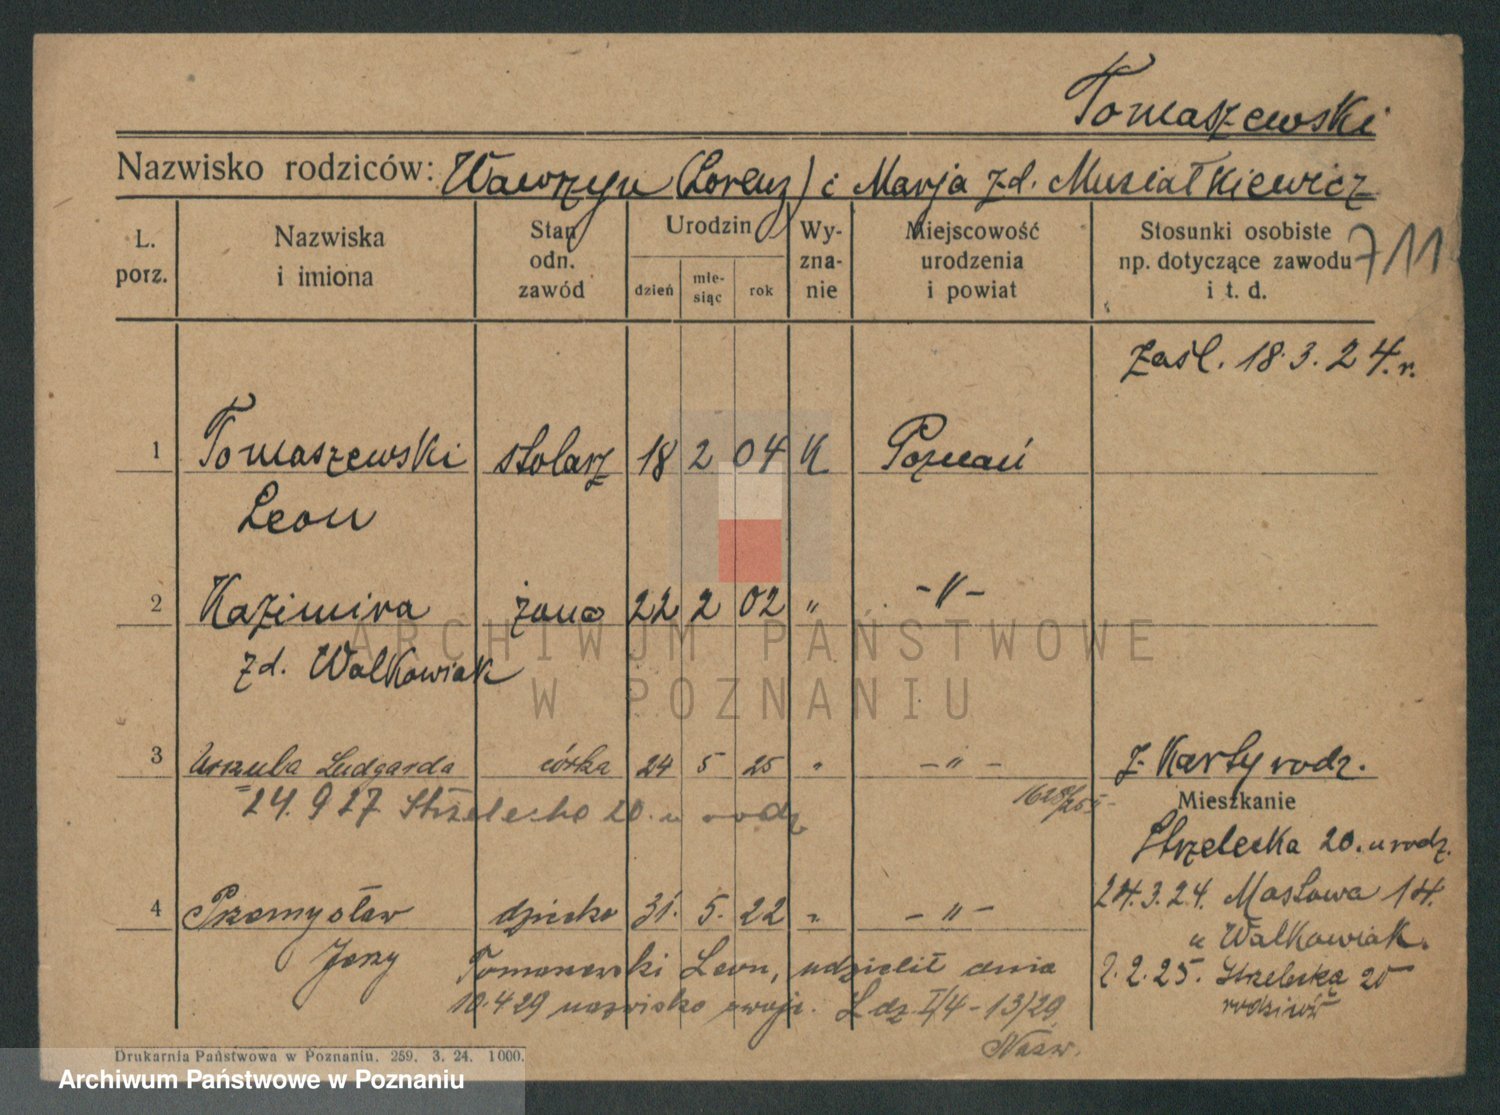 Tomaszewski
Nazwisko rodziców: Wawrzyn (Lorenz) i Marja zd. Musiałkiewicz
L. porz.
Nazwiska i imiona
Stan odn. zawód
Urodzin
dzień
mie-siąc
rok
Wy-zna-nie
Miejscowość urodzenia i powiat
Stosunki osobiste np. dotyczące zawodu i t. d.
711
zaśl. 18.3.24.r.
1 Tomaszewski stolarz 18 2 04 K Poznań
Leon
2 Kazimira żona 22 2 02 " -"-
zd. Walkowiak
3 Urszula Ludgarda córka 24 5 25 " -"- z Karty rodz.
24.9.27 Strzelecka 20. u rodz
Mieszkanie
Strzelecka 20. u rodz.
24.3.24. Masłowa 14.
u Walkowiak.
4 Przemysław dziecko 31. 5. 22 " -"-
Jerzy
2.2.25. Strzelecka 20
rodziców
Tomaszewski Leon, udzielił dnia
10.4 29 nazwisko swoje. L dz. I/4-13/29
Drukarnia Państwowa w Poznaniu. 259. 3. 24. 1000.
ARCHIWUM PAŃSTWOWE
W POZNANIU
Archiwum Państwowe w Poznaniu